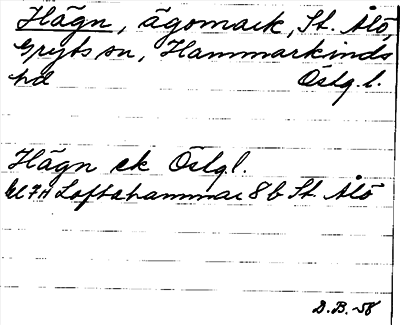 Hägn, ägomark, St. Ålö,
Gryts sn, Hammarkinds
hd Östg.l.
Hägn ek Östgl.
Loftahammar 8b St. Ålö
D.B. -58